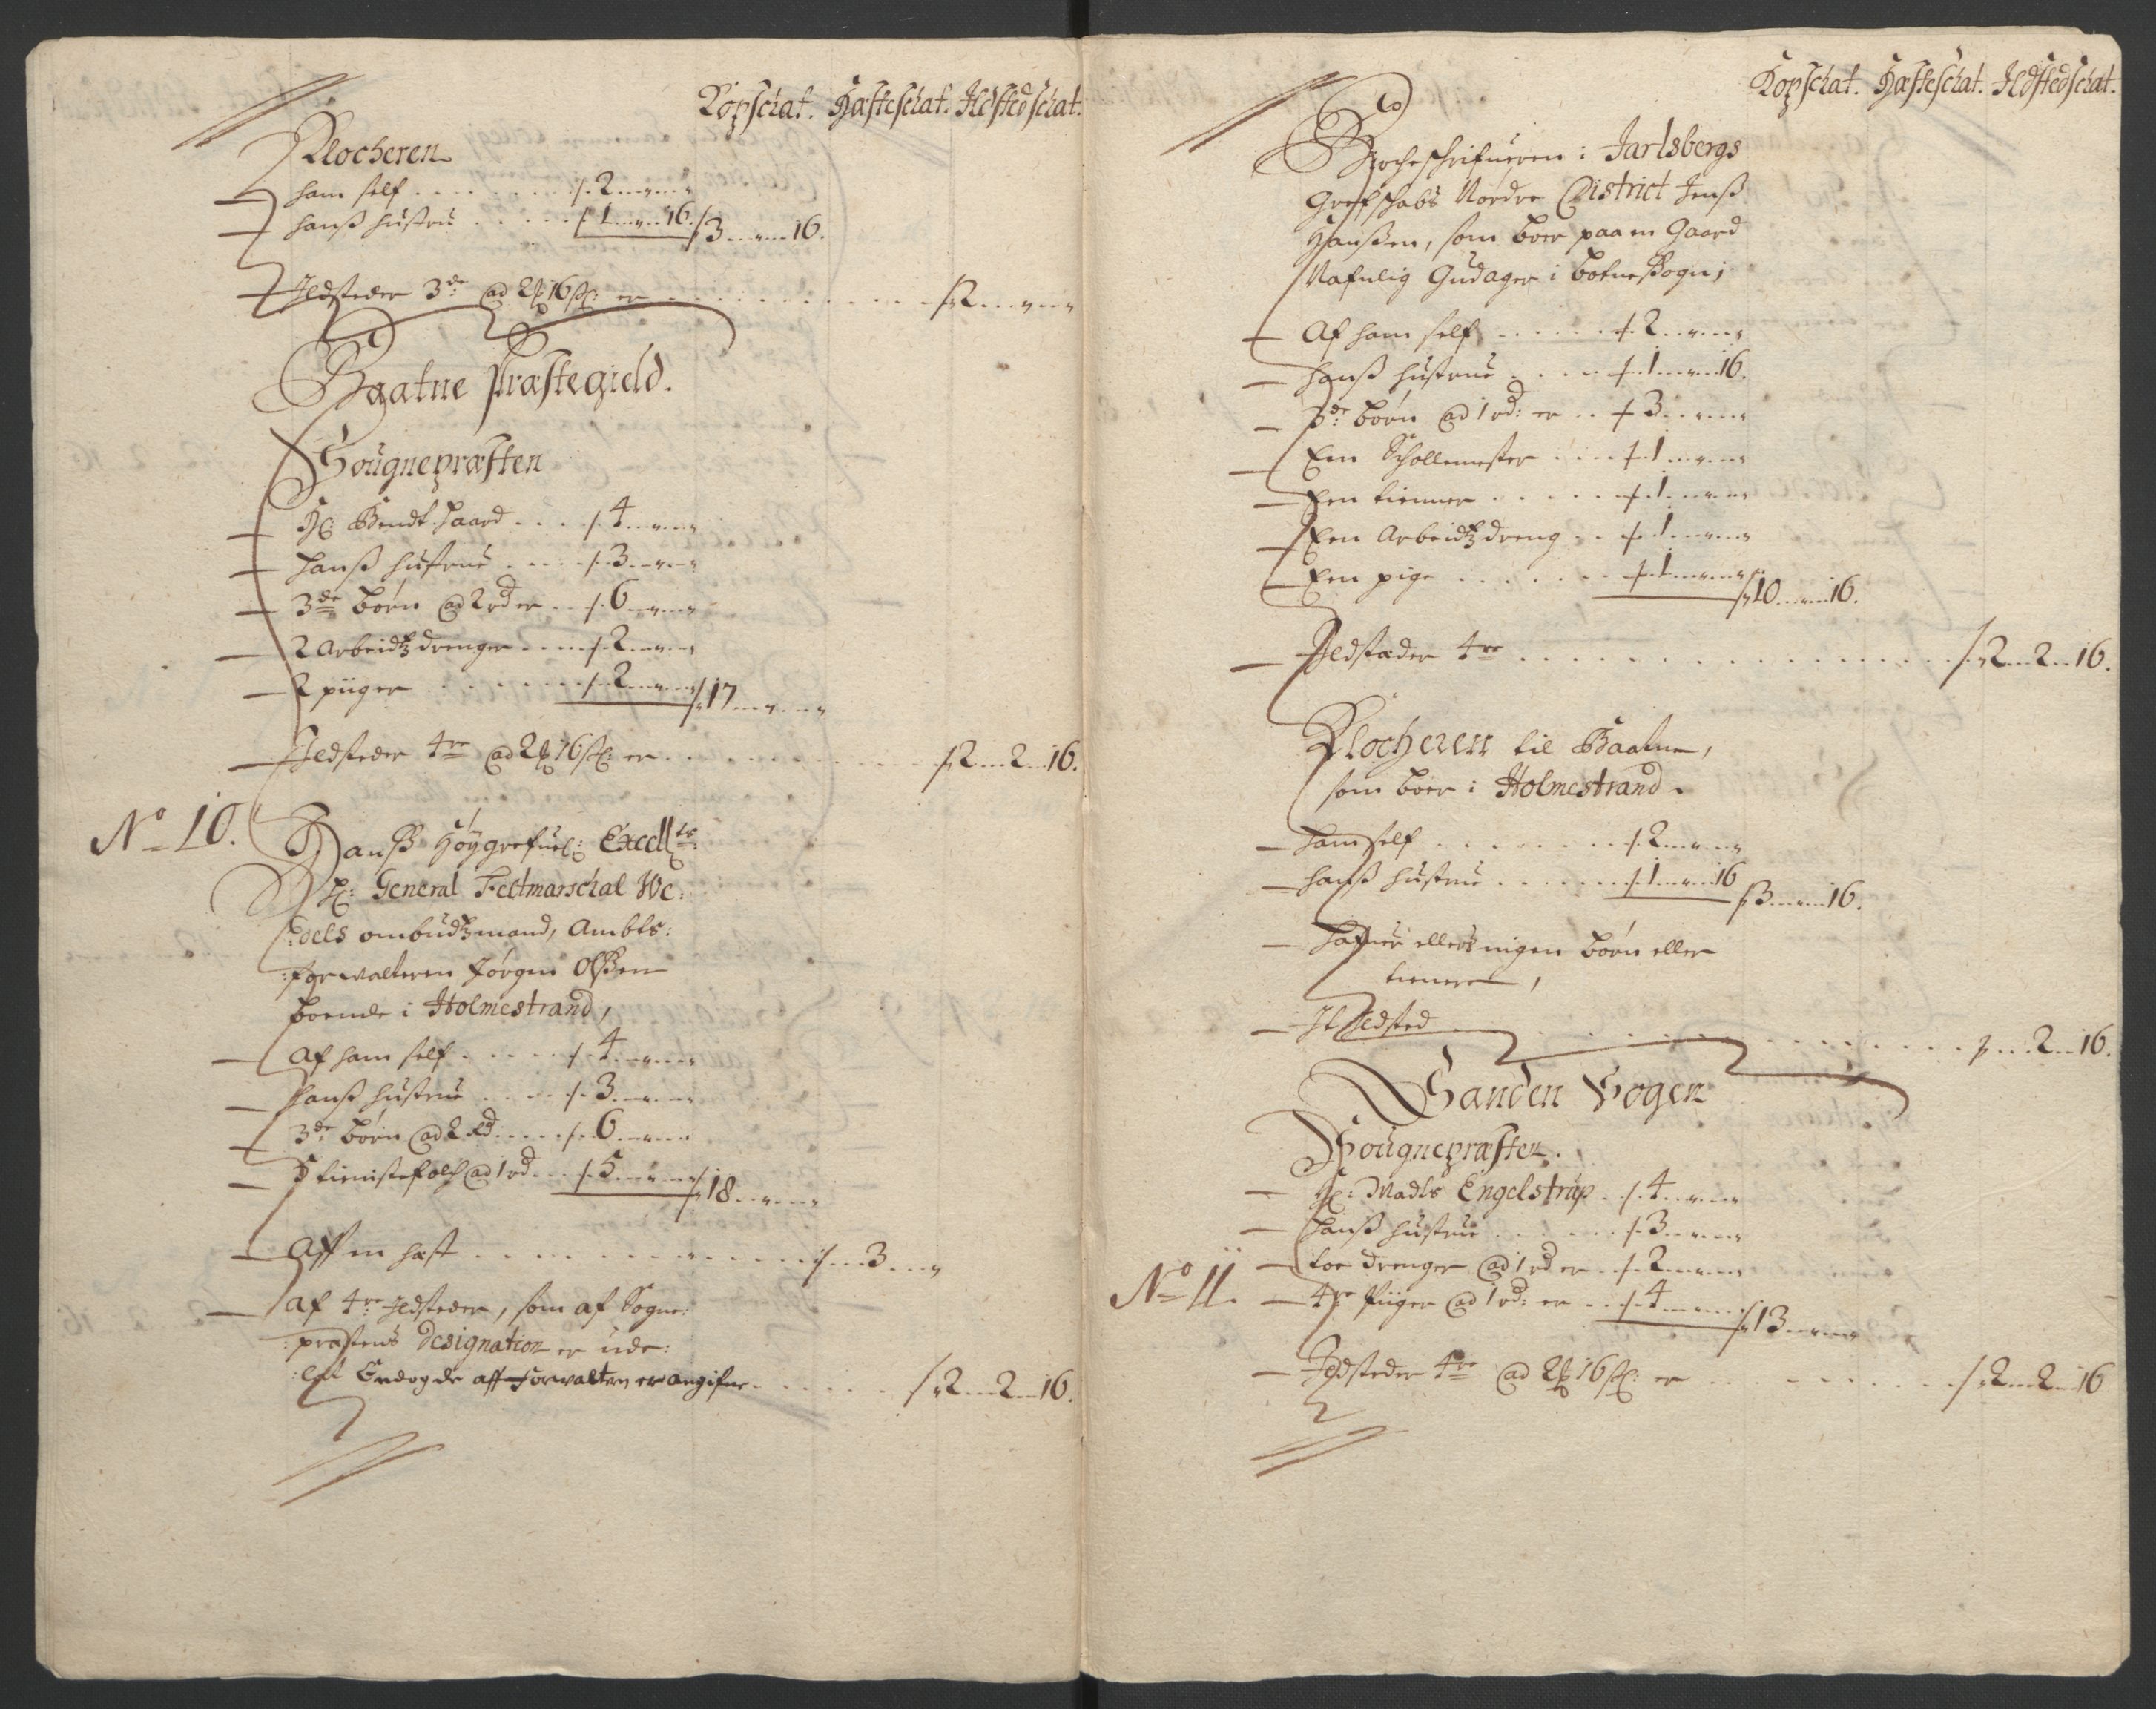 Kopschat. Hæsteschat. Ildstedschat.
Klocheren
ham self . . . . . 2 -„-„
hanß hustru . . . . 1 -„- 16. 3 -„- 16.
Ildsteder 3de ad 2 16 s: er . . . . 2 -„-„
Baatne Præstegield.
Sougnepræsten
Hr: Bendt Haard . . . 4 -„-„
hanß hustrue . . . 3 -„-„
3de børn ad 2 rd er . . 6 -„-„
2 Arbeidtz drenger . . . 2 -„-„
2 piiger . . . . . 2 -„-„ 17 -„-„
Ildsteder 4re ad 2 16 s: er . . . . 2 - 2 - 16.
No 10.
Hanß Høygrefuel: Excellts:
Hr: General Feltmarschal We:
:dels ombudtzmand, Ambts:
:forwalteren Jørgen Olßen
boende i Holmestrand,
Af ham self . . . . 4 -„-„
hanß hustrue . . . 3 -„-„
3de børn ad 2 Rd . . . 6 -„-„
5 tienistefolch ad 1 rd . . 5 -„-„ 18 -„-„
Aff en hæst . . . . . . . 3 -„
af 4re Ildsteder, som af Sogne:
:præstens Designation er ude:
:lat Endog de aff Forwalteren er angifne . . . . 2 - 2 - 16.
Kopschat. Hæsteschat. Ildstedschat.
Sorenschrifueren i Jarlsbergs
Grefschabs Nordre District Jenß
Hanßen, som boer paa en Gaard
Nafnlig Gudager i botne Sogn;
Af ham self . . . . 2 -„-„
hanß hustrue . . . . 1 -„- 16.
3de børn ad 1 rd: er . . 3 -„-„
Een Schollemester . . . 1 -„-„
Een tienner . . . . . 1 -„-„
Een Arbeidtz dreng . . 1 -„-„
Een pige . . . . . . 1 -„-„ 10 -„- 16.
Ildstæder 4re . . . . . . . . 2 - 2 - 16.
Klocheren til Baatne,
som boer i Holmestrand.
ham self . . . . . . 2 -„-„
hanß hustrue . . . . . 1 -„- 16 3 -„- 16.
hafuer ellers ingen børn eller
tienere,
It Ildsted . . . . . . . . . - 2 - 16.
Sanden Sogen
Sougnepræsten.
Hr: Madts Engelstrup . . 4 -„-„
hanß hustrue . . . . . 3 -„-„
toe drenger ad 1 rd er . . 2 -„-„
No 11.
4re Piiger ad 1 rd: er . . . 4 -„-„ 13 -„-„
Ildsteder 4re ad 2 16 s: er . . . . . 2 - 2 - 16